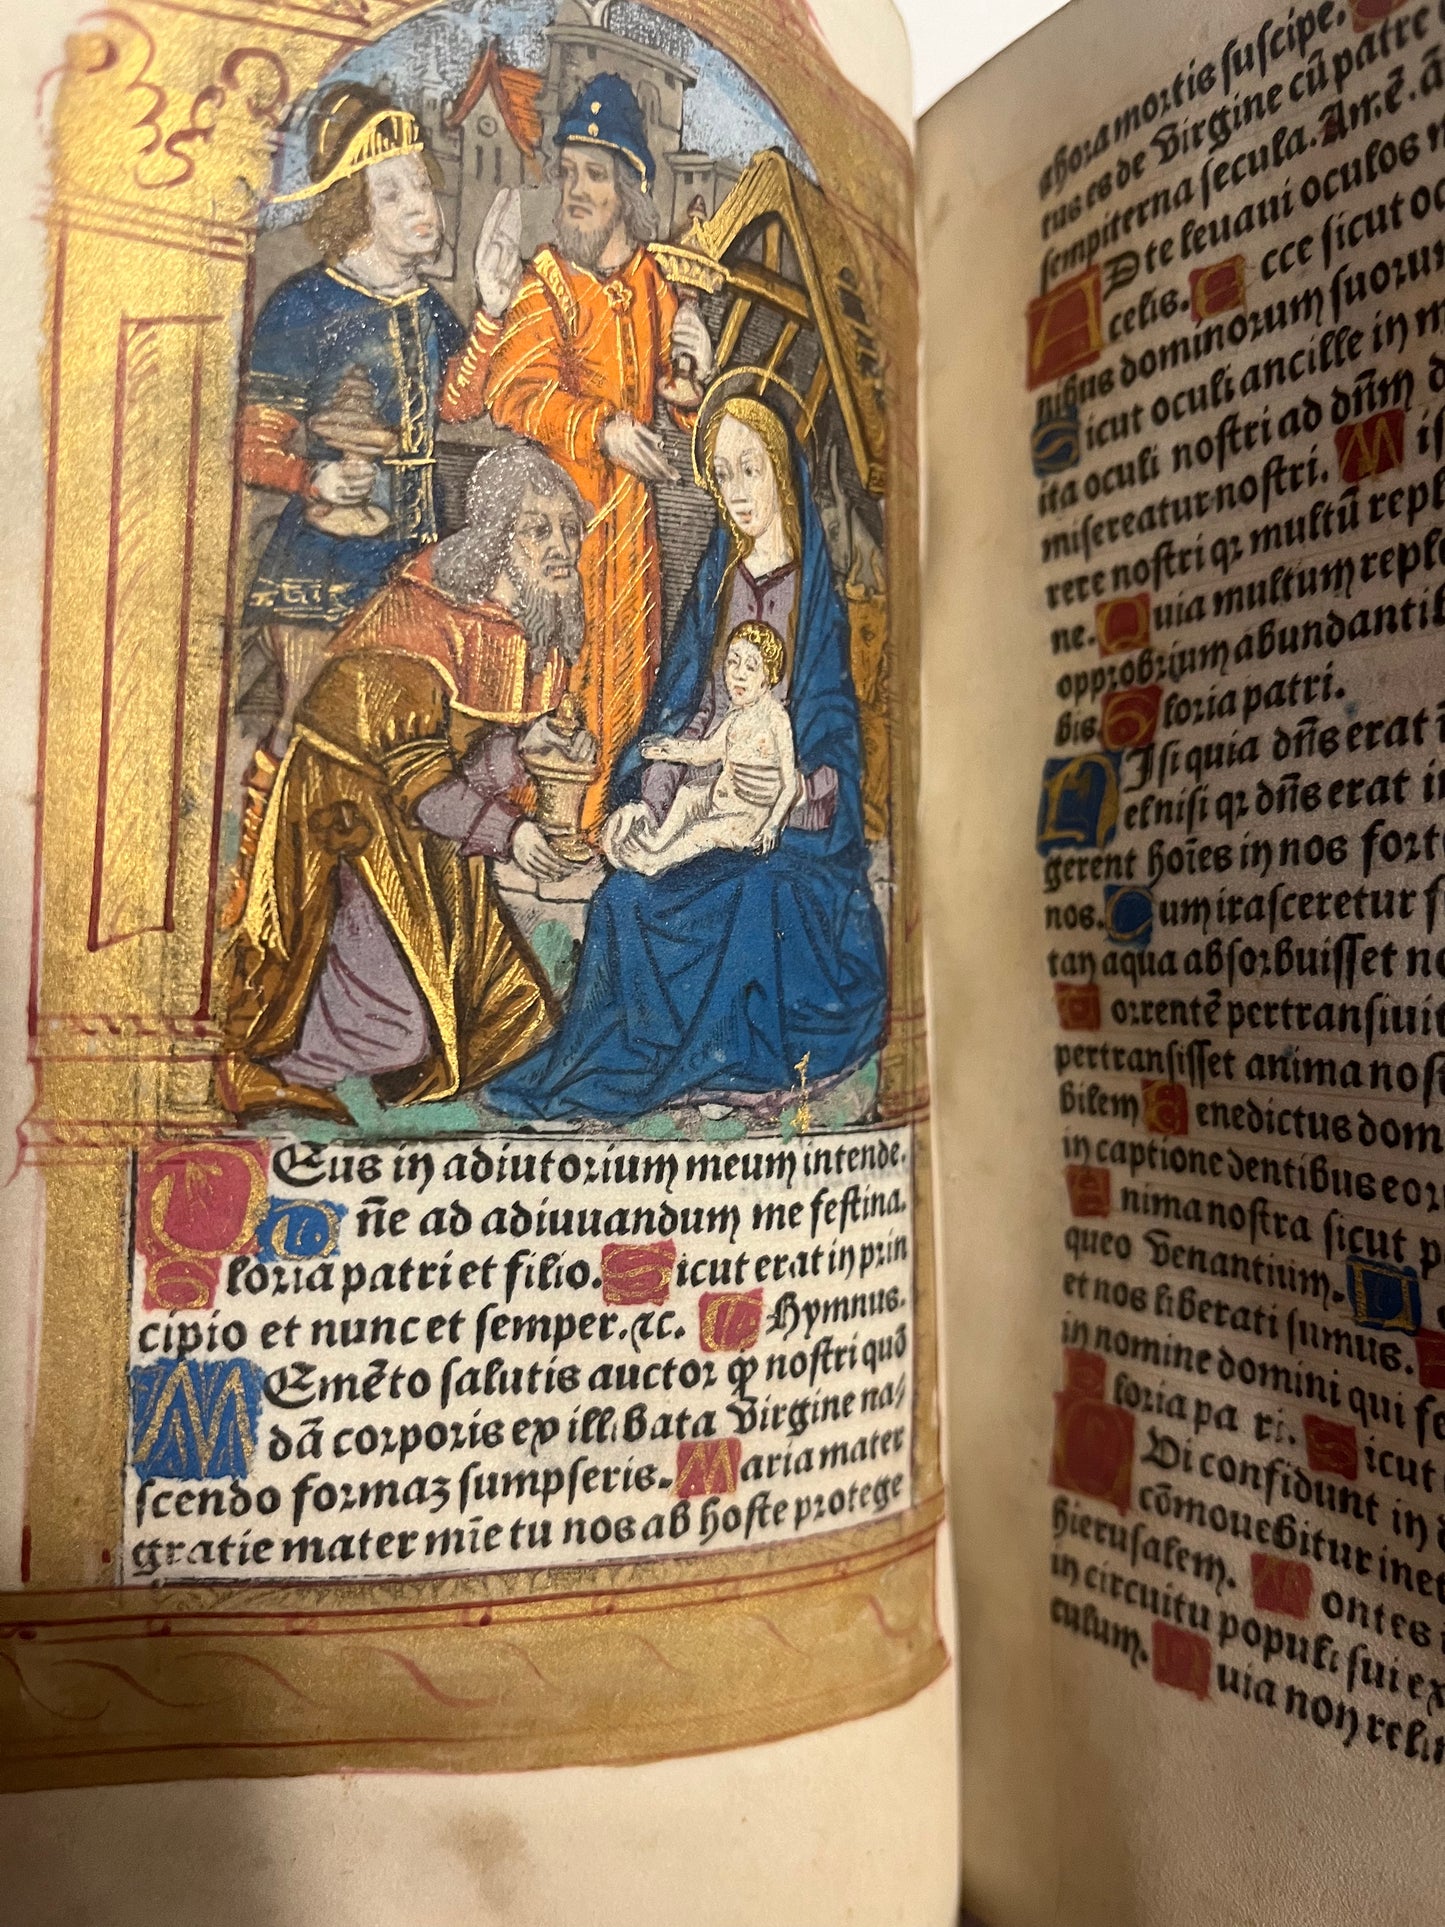 Deus in adiutorium meum intende.
Dñe ad adiuuandum me festina.
Gloria patri et filio. Sicut erat in prin
cipio et nunc et semper. ⁊c. Hymnus.
MEmẽto salutis auctor qꝫ nostri quõ
dã corporis ex illibata Virgine na/
scendo formaꝫ sumpseris. Maria mater
gratie mater mie tu nos ab hoste protege
hora mortis suscipe.
tus es de Virgine cũ patre
sempiterna secula. Amẽ.
AD te leuaui oculos
celis. Ecce sicut
nibus dominorum suorum
Sicut oculi ancille in
ita oculi nostri ad dñm
misereatur nostri. Mis
rere nostri qꝛ multũ repl
ne. Quia multum reple
opprobrium abundantib
bis. Gloria patri.
NIsi quia dñs erat
et nisi qꝛ dñs erat
gerent hoĩes in nos fort
nos. Cum irasceretur
tan aqua absorbuisset
Torrentẽ pertransiuit
pertransisset anima nost
bilem Benedictus dom
in captione dentibus eor
Anima nostra sicut p
queo Venantium. L
et nos liberati sumus.
in nomine domini qui fe
Gloria pa ri. Sicut
QVi confidunt in
cõmouebitur in et
hierusalem. Montes
in circuitu populi sui ex
culum. Quia non reli